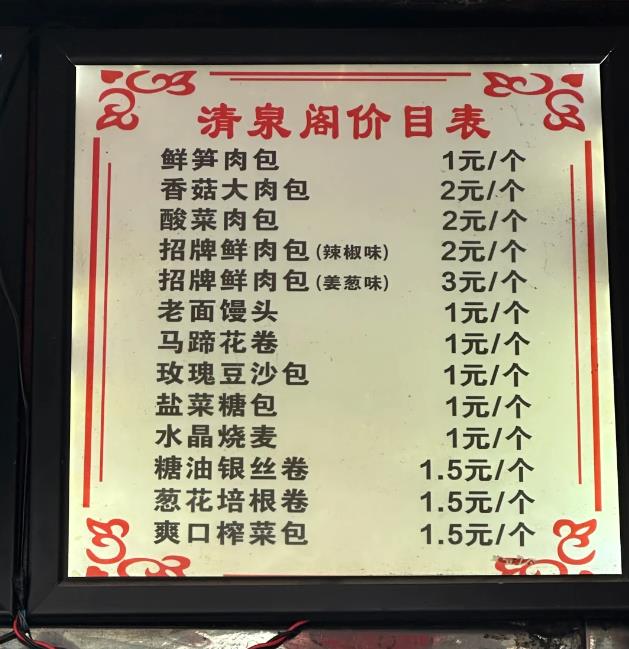 清泉阁价目表
鲜笋肉包 1元/个
香菇大肉包 2元/个
酸菜肉包 2元/个
招牌鲜肉包(辣椒味) 2元/个
招牌鲜肉包(姜葱味) 3元/个
老面馒头 1元/个
马蹄花卷 1元/个
玫瑰豆沙包 1元/个
盐菜糖包 1元/个
水晶烧麦 1元/个
糖油银丝卷 1.5元/个
葱花培根卷 1.5元/个
爽口榨菜包 1.5元/个